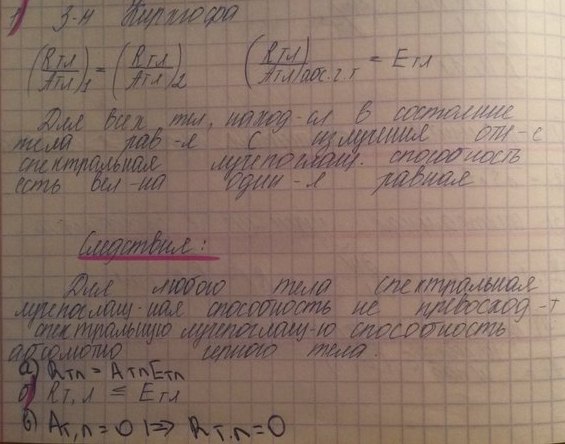 З-н Кирхгофа
(Rтл/Aтл)1 = (Rтл/Aтл)2 (Rтл/Aтл)абс.г.т = Eтл
Для всех тел, наход-ся в состояние
тела рав-я с излучения отн-е
спектральная лучепоглащ. способность
есть вел-на один-я равная
Следствия:
Для любого тела спектральная
лучепоглащ-ная способность не превосход-т
спектральную лучепоглащ-ю способность
абсолютно черного тела.
а) Rтл = AтлEтл
б) Rт,л ≤ Eтл
в) Aт,л = 0 => Rт,л = 0